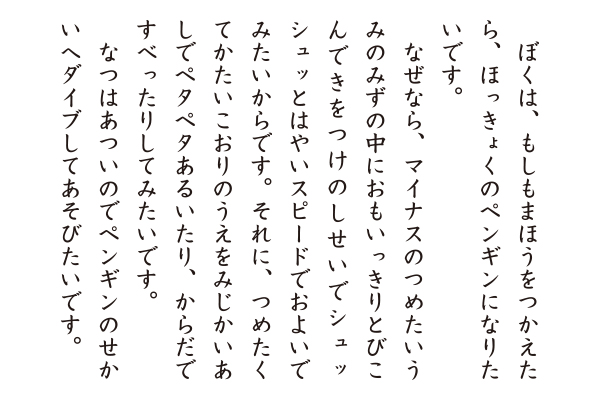 ぼくは、もしもまほうをつかえた
ら、ほっきょくのペンギンになりた
いです。
　なぜなら、マイナスのつめたいう
みのみずの中におもいっきりとびこ
んできをつけのしせいでシュッ
シュッとはやいスピードでおよいで
みたいからです。それに、つめたく
てかたいこおりのうえをみじかいあ
しでペタペタあるいたり、からだで
すべったりしてみたいです。
　なつはあついのでペンギンのせか
いへダイブしてあそびたいです。